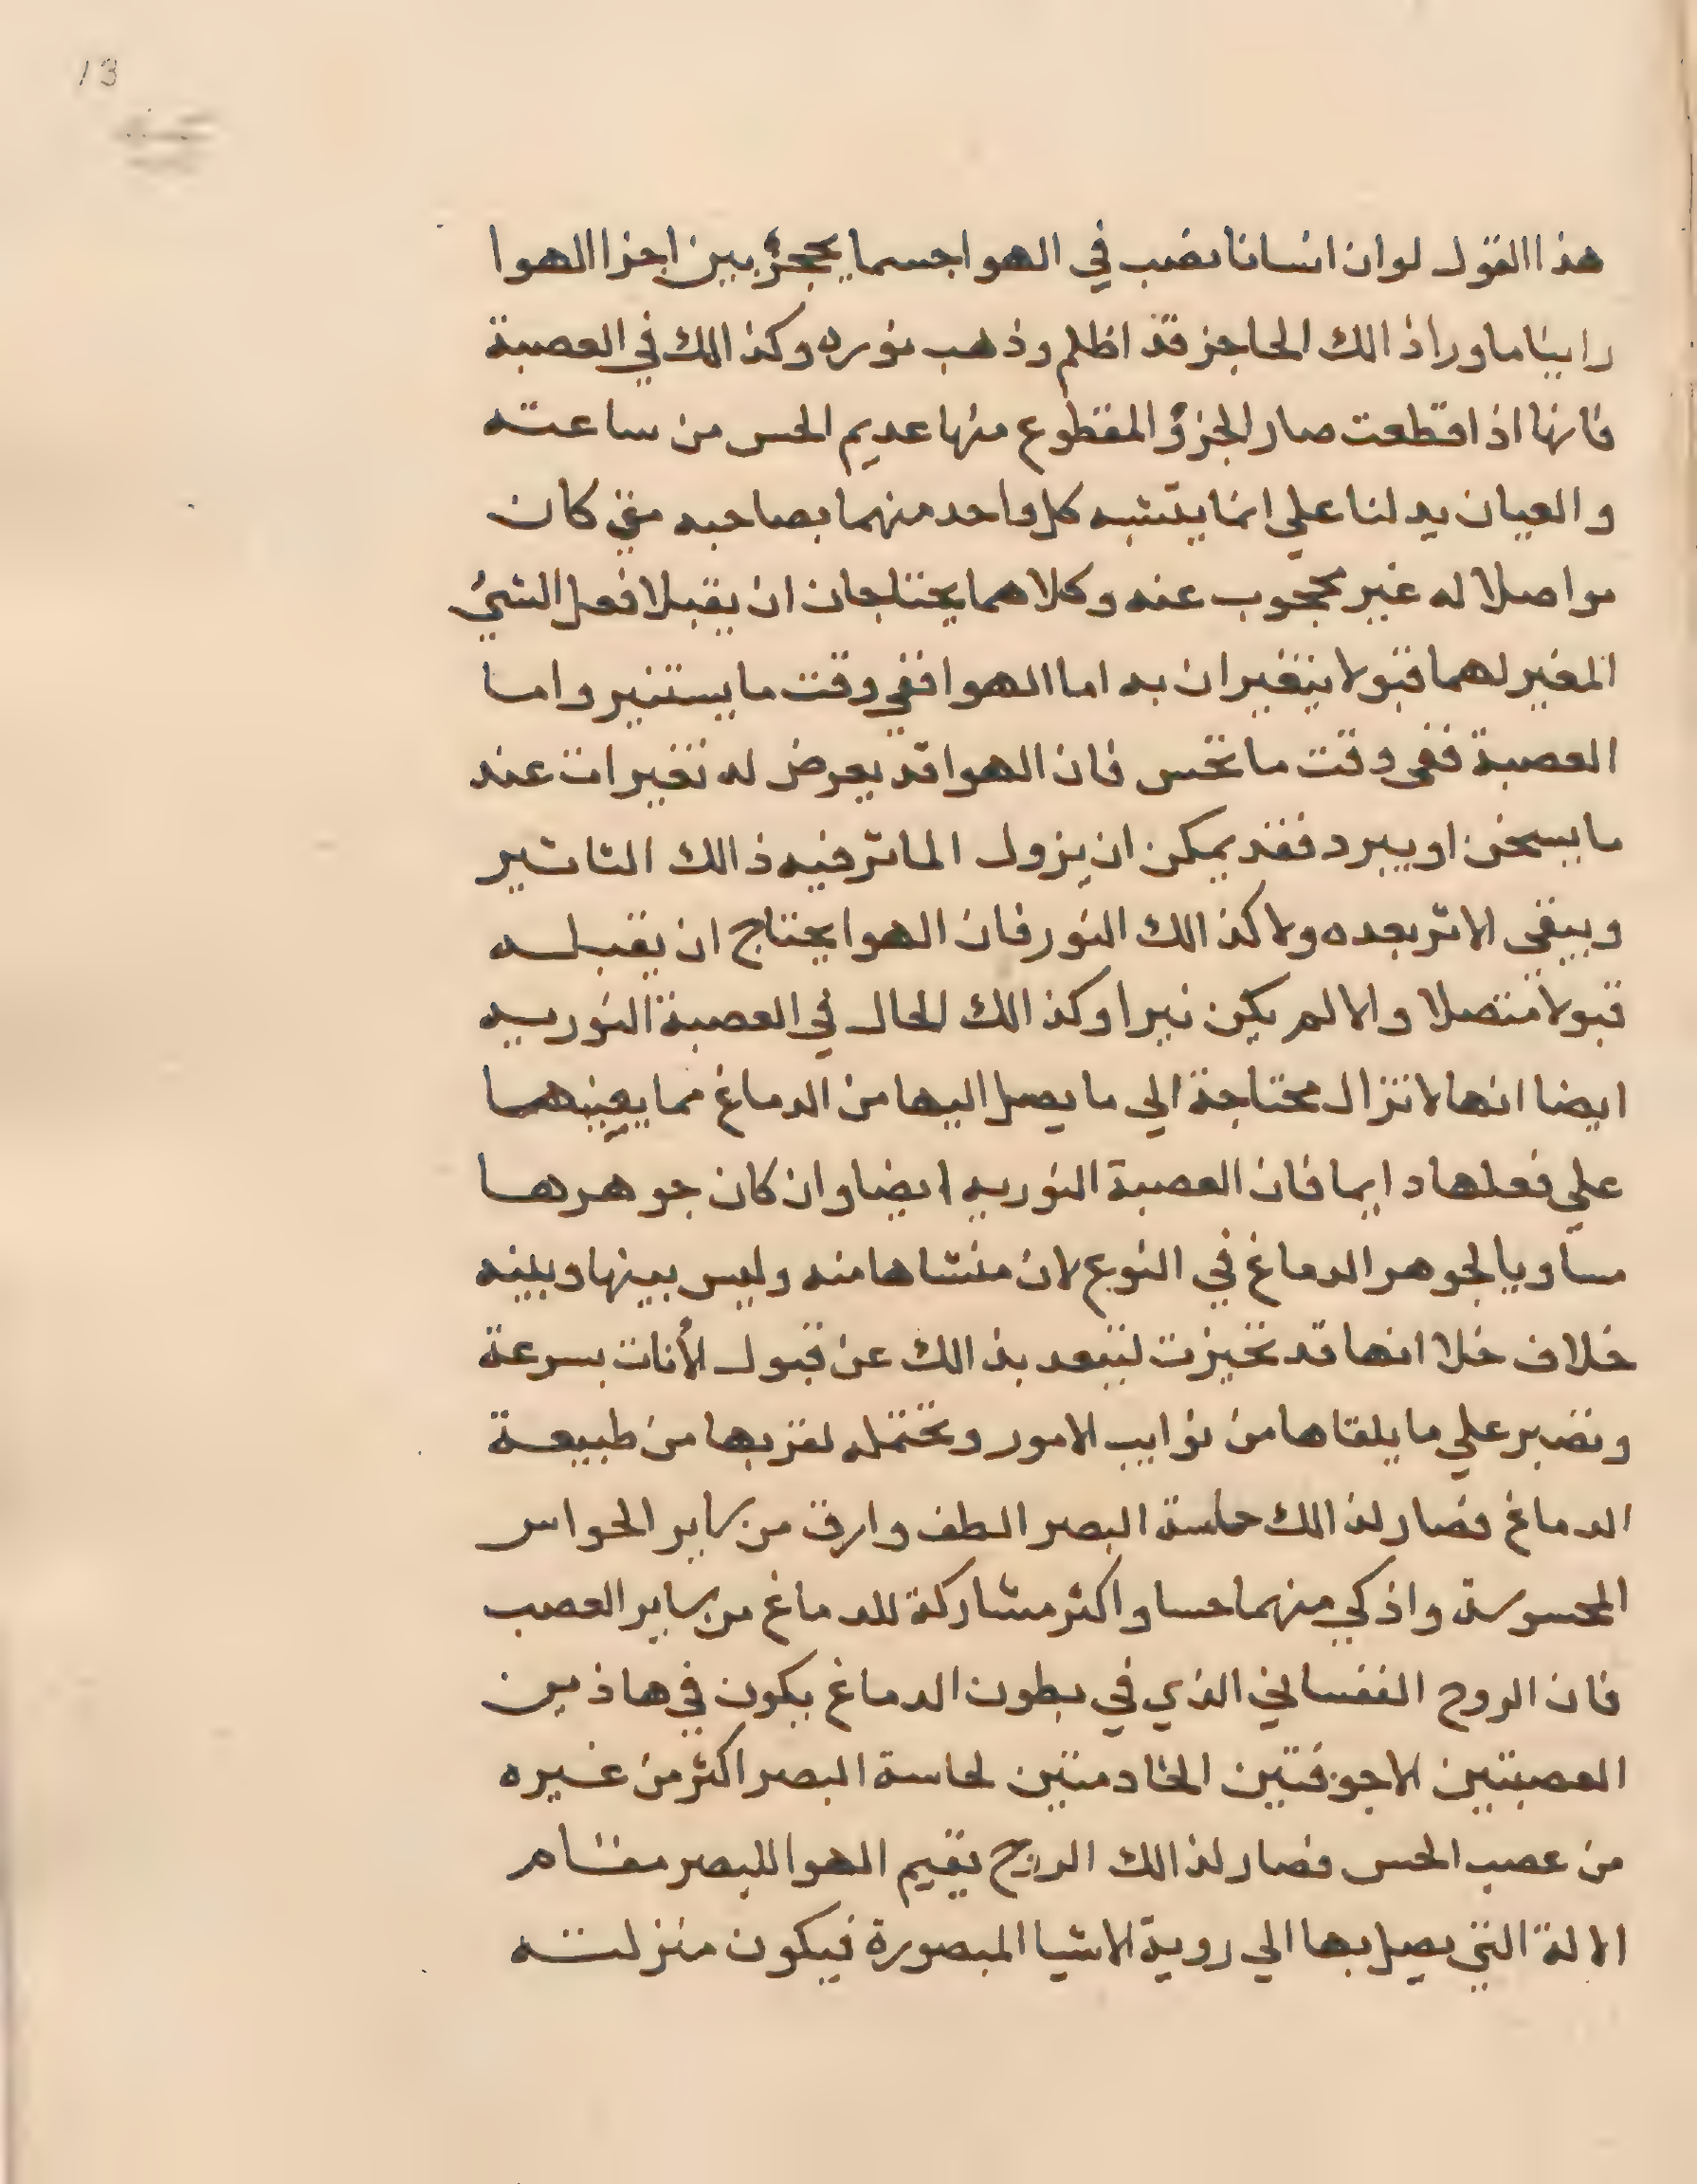 13
هذا القول لو ان انسانا نصب في الهوا جسما يحجز بين اجزا الهوا
راينا ما ورا ذالك الحاجز قد اظلم وذهب نوره وكذالك في العصبة
فانها اذا قطعت صار الجزؤ المقطوع منها عديم الحس من ساعته
والعيان يدلنا علي انما يتشبه كل واحد منهما بصاحبه متي كان
مواصلا له غير محجوب عنه وكلاهما يحتاجان ان يقبلا فعل الشيء
المغير لهما قبولا يتغيران به اما الهوا ففي وقت ما يستنير واما
العصبة ففي وقت ما تحس فان الهوا قد يعرض له تغيرات عند
ما يسخن او يبرد فقد يمكن ان يزول الماثر فيه ذالك التاثير
ويبقي الاثر بعده ولا كذالك النور فان الهوا يحتاج ان يقبله
قبولا متصلا والا لم يكن نيرا وكذالك الحال في العصبة النوريه
ايضا انها لا تزال محتاجة الي ما يصل اليها من الدماغ مما يعينهما
علي فعلها دايما فان العصبة النوريه ايضا وان كان جوهرها
مساويا لجوهر الدماغ في النوع لان منشاها منه وليس بينها وبينه
خلاف خلا انها قد تحيزت لتبعد بذالك عن قبول الأفات بسرعة
وتصبر علي ما يلقاها من نوايب الامور وتحتمله لقربها من طبيعة
الدماغ فصار لذالك حاسة البصر الطف وارق من ساير الحواس
المحسوسة واذكي منهما حسا واكثر مشاركة للدماغ من ساير العصب
فان الروح النفساني الذي في بطون الدماغ يكون في هاذين
العصبتين الاجوفتين الخادمتين لحاسة البصر اكثر من غيره
من عصب الحس فصار لذالك الروح يقيم الهوا للبصر مقام
الالة التي يصل بها الي روية الاشيا المبصورة فيكون منزلته